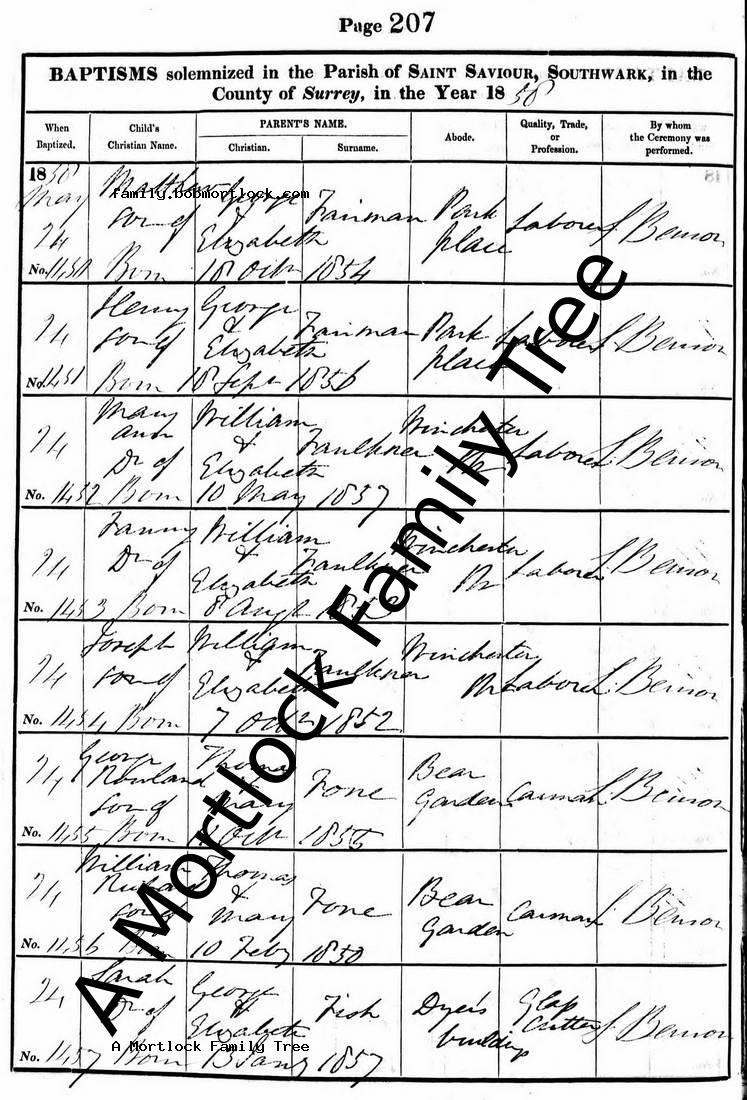 Page 207
BAPTISMS solemnized in the Parish of SAINT SAVIOUR, SOUTHWARK, in the
County of Surrey, in the Year 18 58
When Baptized. Child's Christian Name. PARENT'S NAME. Christian. Surname. Abode. Quality, Trade, or Profession. By whom the Ceremony was performed.
1858
May
24
family.bobmortlock.com
son of
&
Elizabeth
Fairman
Park
place
Laborer
S Benson
No. 1450 Born 18 Octr 1854
24
Henry
son of
George
&
Elizabeth
Fairman
Park
place
Laborer
S Benson
No. 1451 Born 18 Sept 1856
24
Mary
Ann
Dr of
William
&
Elizabeth
Faulkner
Winchester
Laborer
S Benson
No. 1452 Born 10 May 1857
24
Fanny
Dr of
William
&
Elizabeth
Faulkner
Winchester
Laborer
S Benson
No. 1453 Born 8 Augt
24
Joseph
son of
William
&
Elizabeth
Faulkner
Winchester
Laborer
S Benson
No. 1454 Born 7 Octr 1852
24
George
Rowland
son of
Thomas
&
Mary
Fone
Bear
Garden
Carman
S Benson
No. 1455 Born Octr 1855
24
William
Richard
son of
Thomas
&
Mary
Fone
Bear
Garden
Carman
S Benson
No. 1456 Born 10 Feby 1850
24
Sarah
Dr of
George
&
Elizabeth
Fish
Dyer's
buildings
Glass
Cutter
S Benson
No. 1457 Born Jany 1857
A Mortlock Family Tree
A Mortlock Family Tree